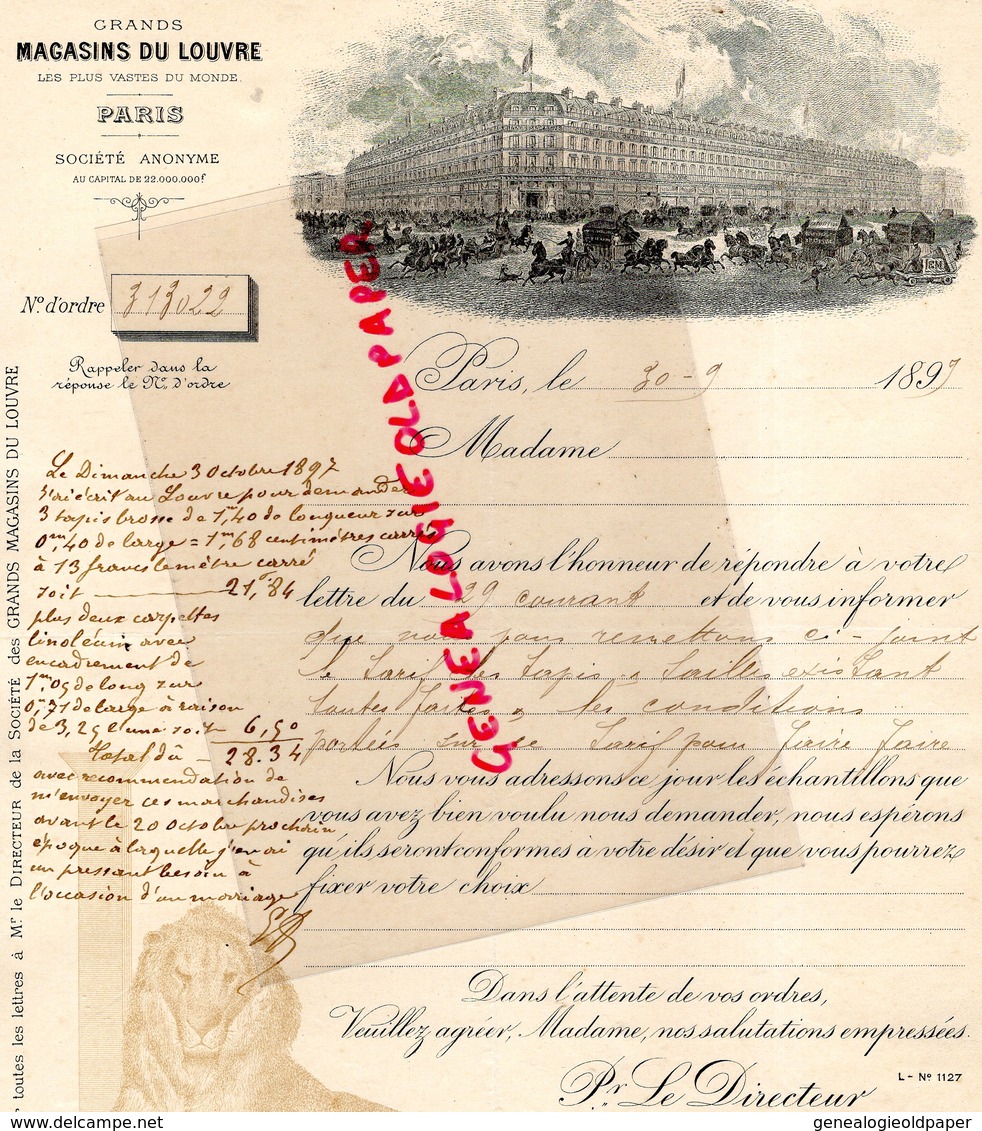 GRANDS
MAGASINS DU LOUVRE
LES PLUS VASTES DU MONDE.
PARIS
SOCIÉTÉ ANONYME
AU CAPITAL DE 22.000.000f
LGM
N° d'ordre 313022
Rappeler dans la
réponse le N° d'ordre
Paris, le 30-9 1897
Madame
Nous avons l'honneur de répondre à votre
lettre du 29 courant et de vous informer
que nous vous remettons ci-joint
le Tarif des Tapis " Tailles existant
toutes faites " les conditions
portées sur ce Tarif pour faire
Nous vous adressons ce jour les échantillons que
vous avez bien voulu nous demander, nous espérons
qu'ils seront conformes à votre désir et que vous pourrez
fixer votre choix
Dans l'attente de vos ordres,
Veuillez agréer, Madame, nos salutations empressées.
Pr. Le Directeur
L - N° 1127
Le Dimanche 3 Octobre 1897
J'ai écrit au Louvre pour demander
3 tapis brosse de 1m,40 de longueur sur
0m,40 de large = 1m,68 centimètres carrés
à 13 francs le mètre carré
soit 21f,84
plus deux carpettes
linoleum avec
encadrement de
1m,05 de long sur
0m,71 de large à raison
de 3,25 l'une soit 6,50
Total dû 28.34
avec recommendation de
m'envoyer ces marchandises
avant le 20 Octobre prochain
époque à laquelle j'en ai
un pressant besoin à
l'occasion d'un mariage
toutes les lettres à Mr le DIRECTEUR de la SOCIÉTÉ des GRANDS MAGASINS DU LOUVRE
GENEALOGIEOLDPAPER
www.delcampe.net
genealogieoldpaper